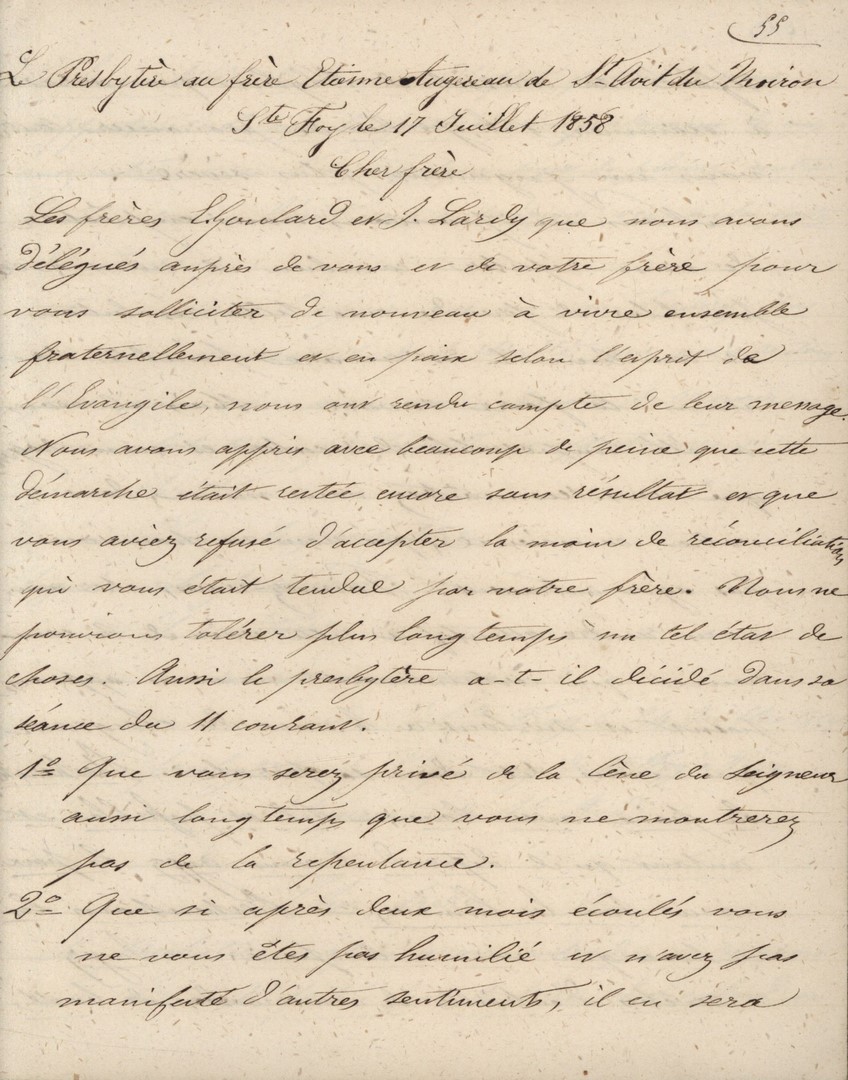 55
Le Presbytère au frère Etienne Augereau de St Avit du Moiron
Ste Foy le 17 Juillet 1858
Cher frère
Les frères E. Goulard et J. Lardy que nous avons
délégués auprès de vous et de votre frère pour
vous solliciter de nouveau à vivre ensemble
fraternellement et en paix selon l'esprit de
l'Evangile, nous ont rendu compte de leur message.
Nous avons appris avec beaucoup de peine que cette
démarche était restée encore sans résultat et que
vous aviez refusé d'accepter la main de réconciliation
qui vous était tendue par votre frère. Nous ne
pouvions tolérer plus longtemps un tel état de
choses. Aussi le presbytère a-t-il décidé dans sa
séance du 11 courant.
1o Que vous serez privé de la Cène du Seigneur
aussi longtemps que vous ne montrerez
pas de la repentance.
2o Que si après deux mois écoulés vous
ne vous êtes pas humilié et n'avez pas
manifesté d'autres sentiments, il en sera